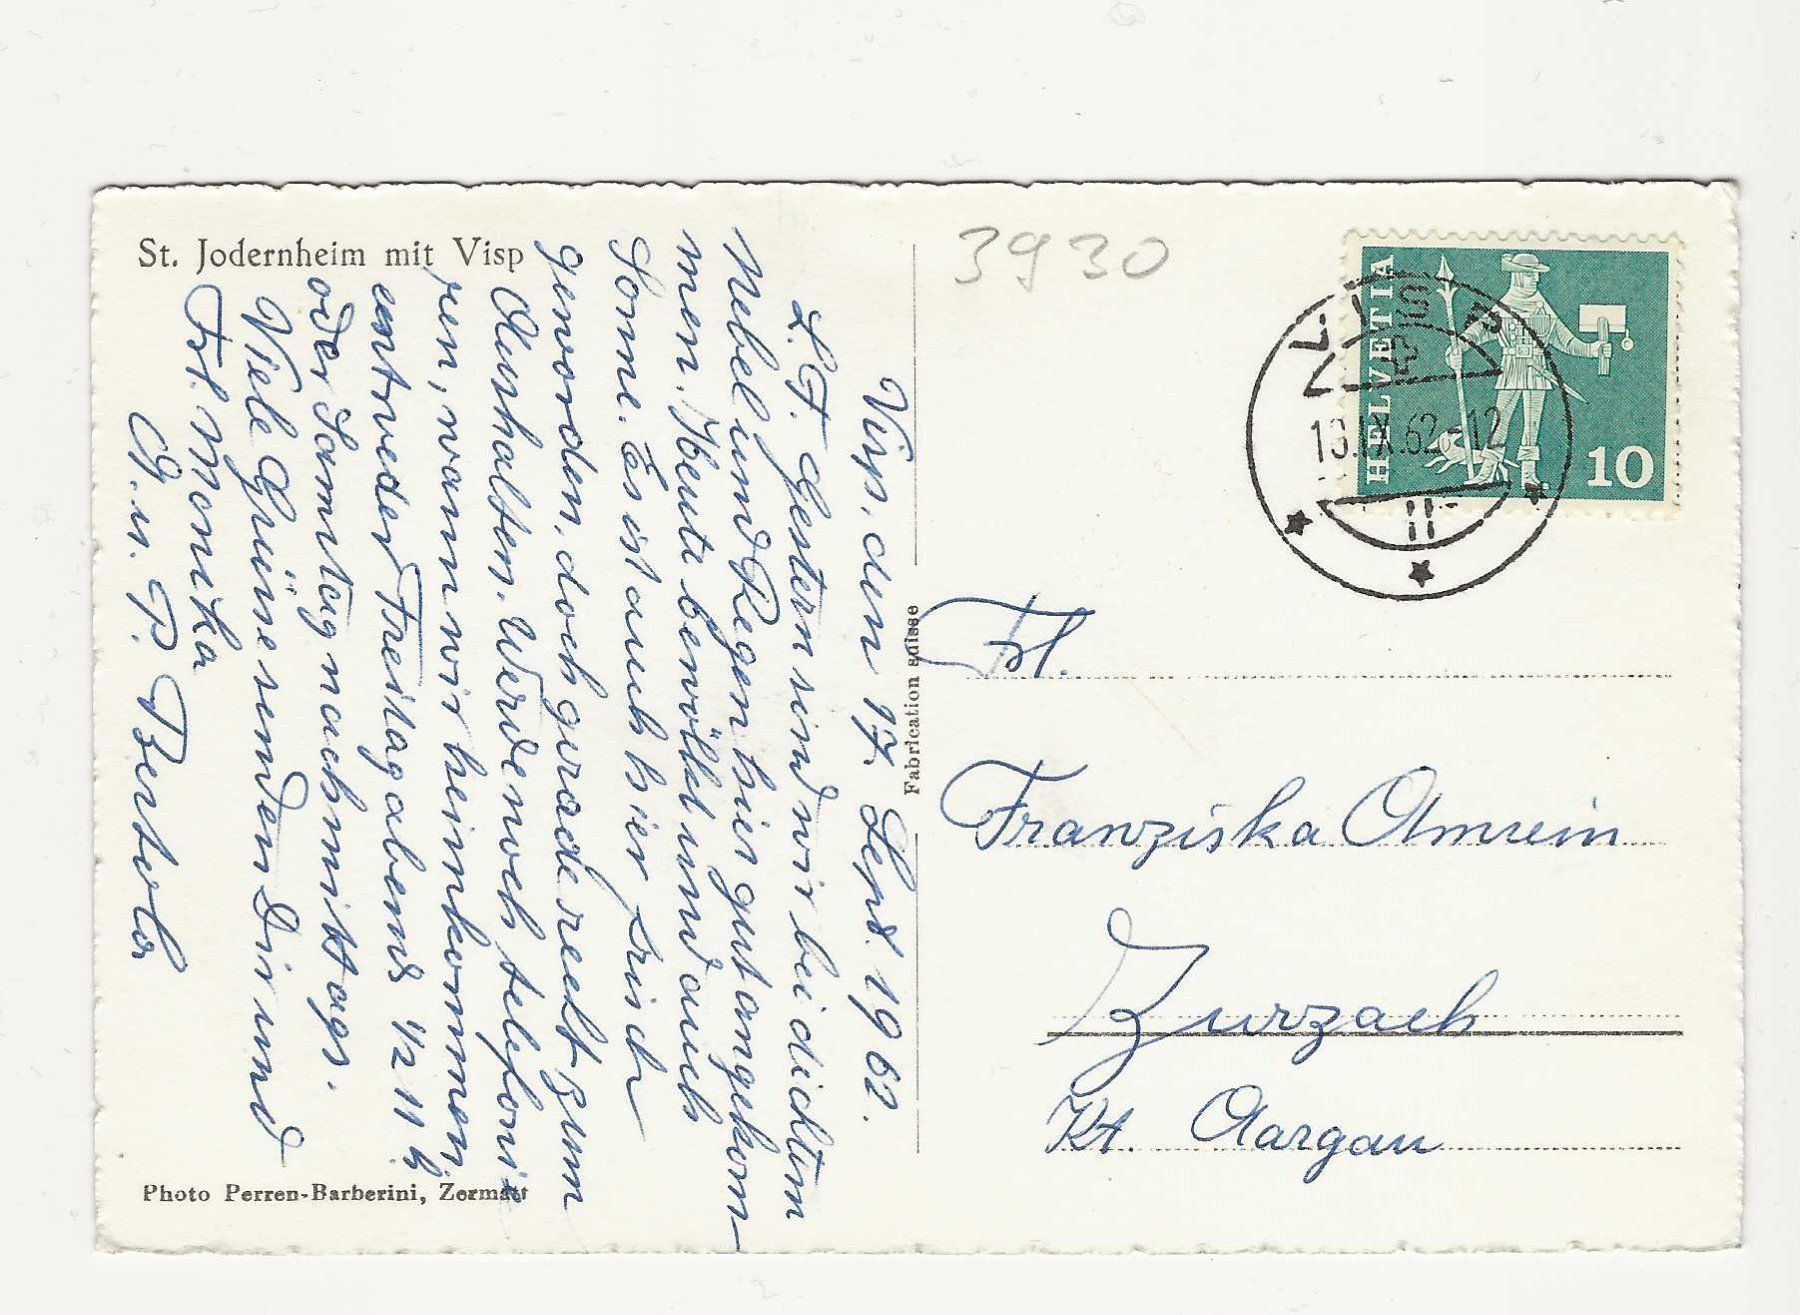 St. Jodernheim mit Visp
Visp, den 17. Sept. 1962.
L. F. Gestern sind wir bei dichtem
Nebel und Regen hier gut angekom-
men. Heute bewölkt und auch
Sonne. Es ist auch hier frisch
geworden, doch gerade recht zum
Aushalten. Werde noch telefonie-
ren, wann wir heimkommen,
entweder Freitag abend ½ 11 h
oder Samstag nachmittags.
Viele Grüsse senden Dir und
Frl. Monika
A. u. P.
Photo Perren-Barberini, Zermatt
Fabrication suisse
3930
HELVETIA
10
VISP
18.IX.62-12
Frl.
Franziska Amrein
Zurzach
Kt. Aargau